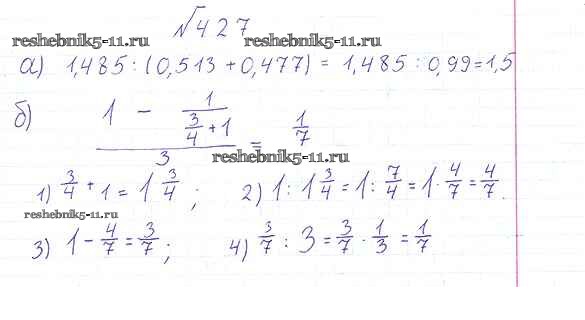 №427
reshebnik5-11.ru reshebnik5-11.ru
а) 1,485 : (0,513 + 0,477) = 1,485 : 0,99 = 1,5
б) (1 - 1/(3/4 + 1))/3 = 1/7
reshebnik5-11.ru
1) 3/4 + 1 = 1 3/4 ; 2) 1 : 1 3/4 = 1 : 7/4 = 1 · 4/7 = 4/7.
reshebnik5-11.ru
3) 1 - 4/7 = 3/7 ; 4) 3/7 : 3 = 3/7 · 1/3 = 1/7